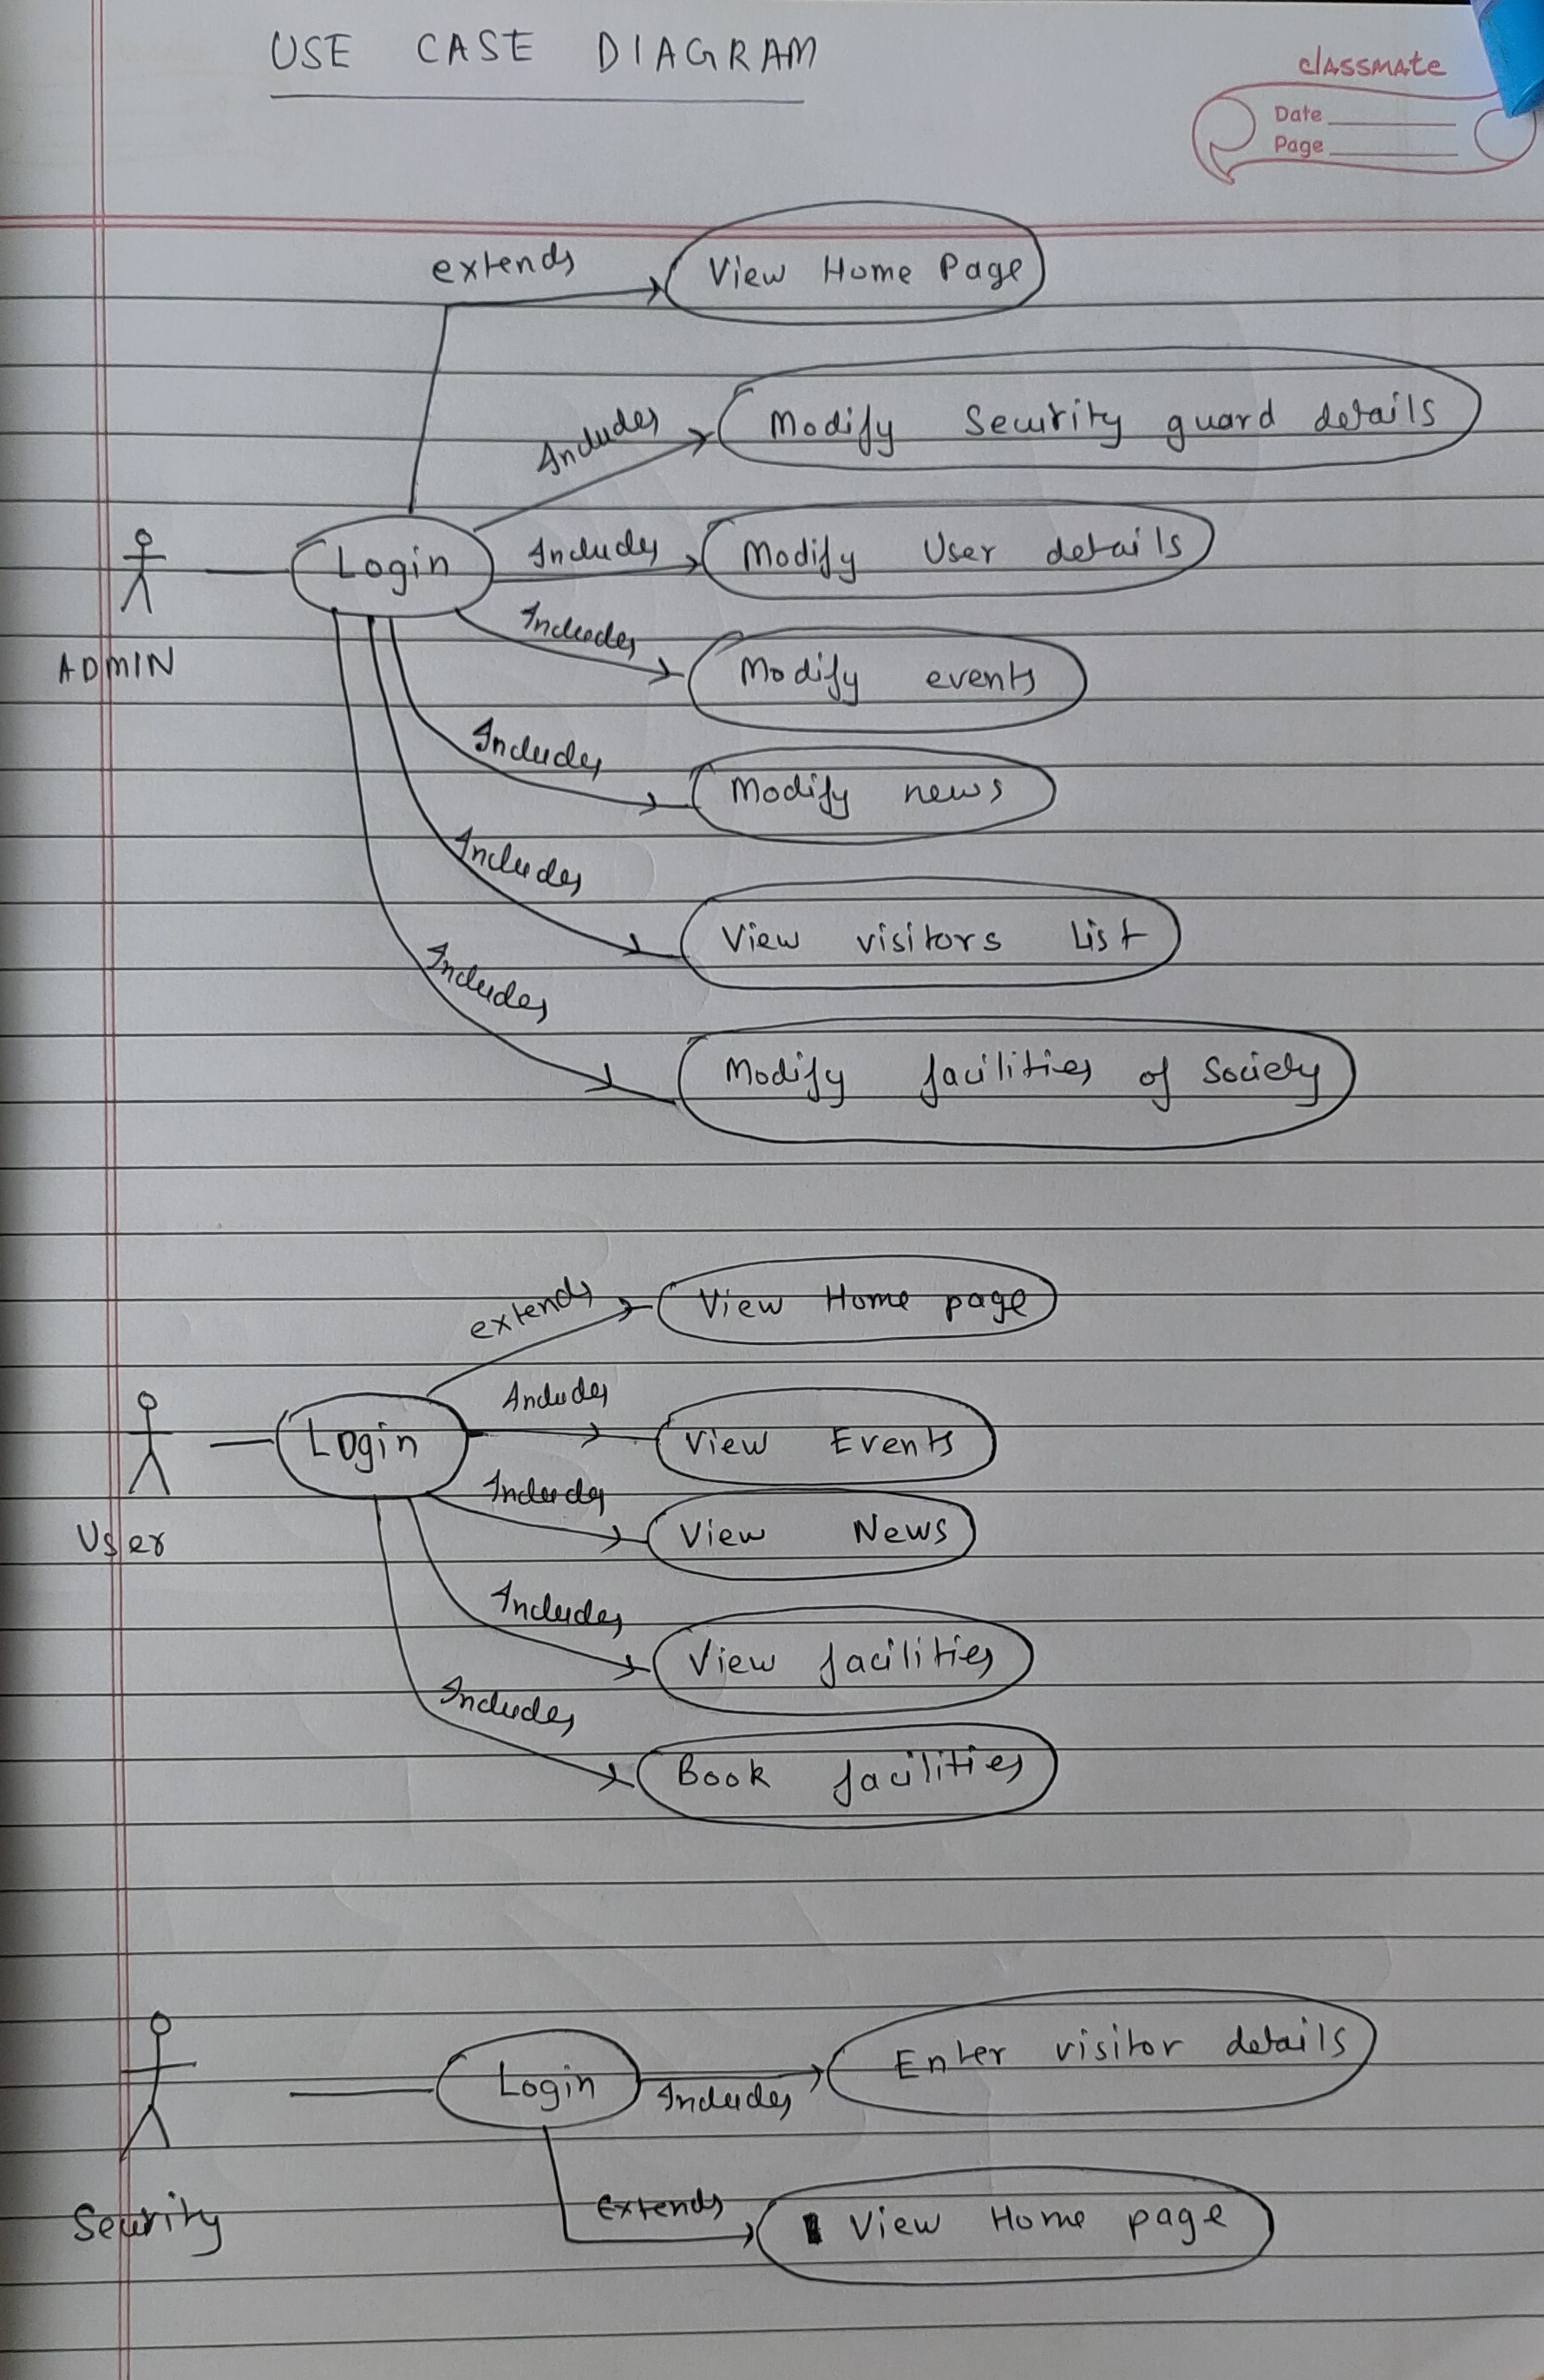 USE CASE DIAGRAM
classmate
Date
Page
extends
View Home Page
Includes
Modify Security guard details
Login
Includes
Modify User details
ADMIN
Includes
Modify events
Includes
Modify news
Includes
View visitors List
Includes
Modify facilities of Society
extends
View Home page
Includes
Login
View Events
User
Includes
View News
Includes
View facilities
Includes
Book facilities
Enter visitor details
Login
Includes
Security
Extends
View Home page